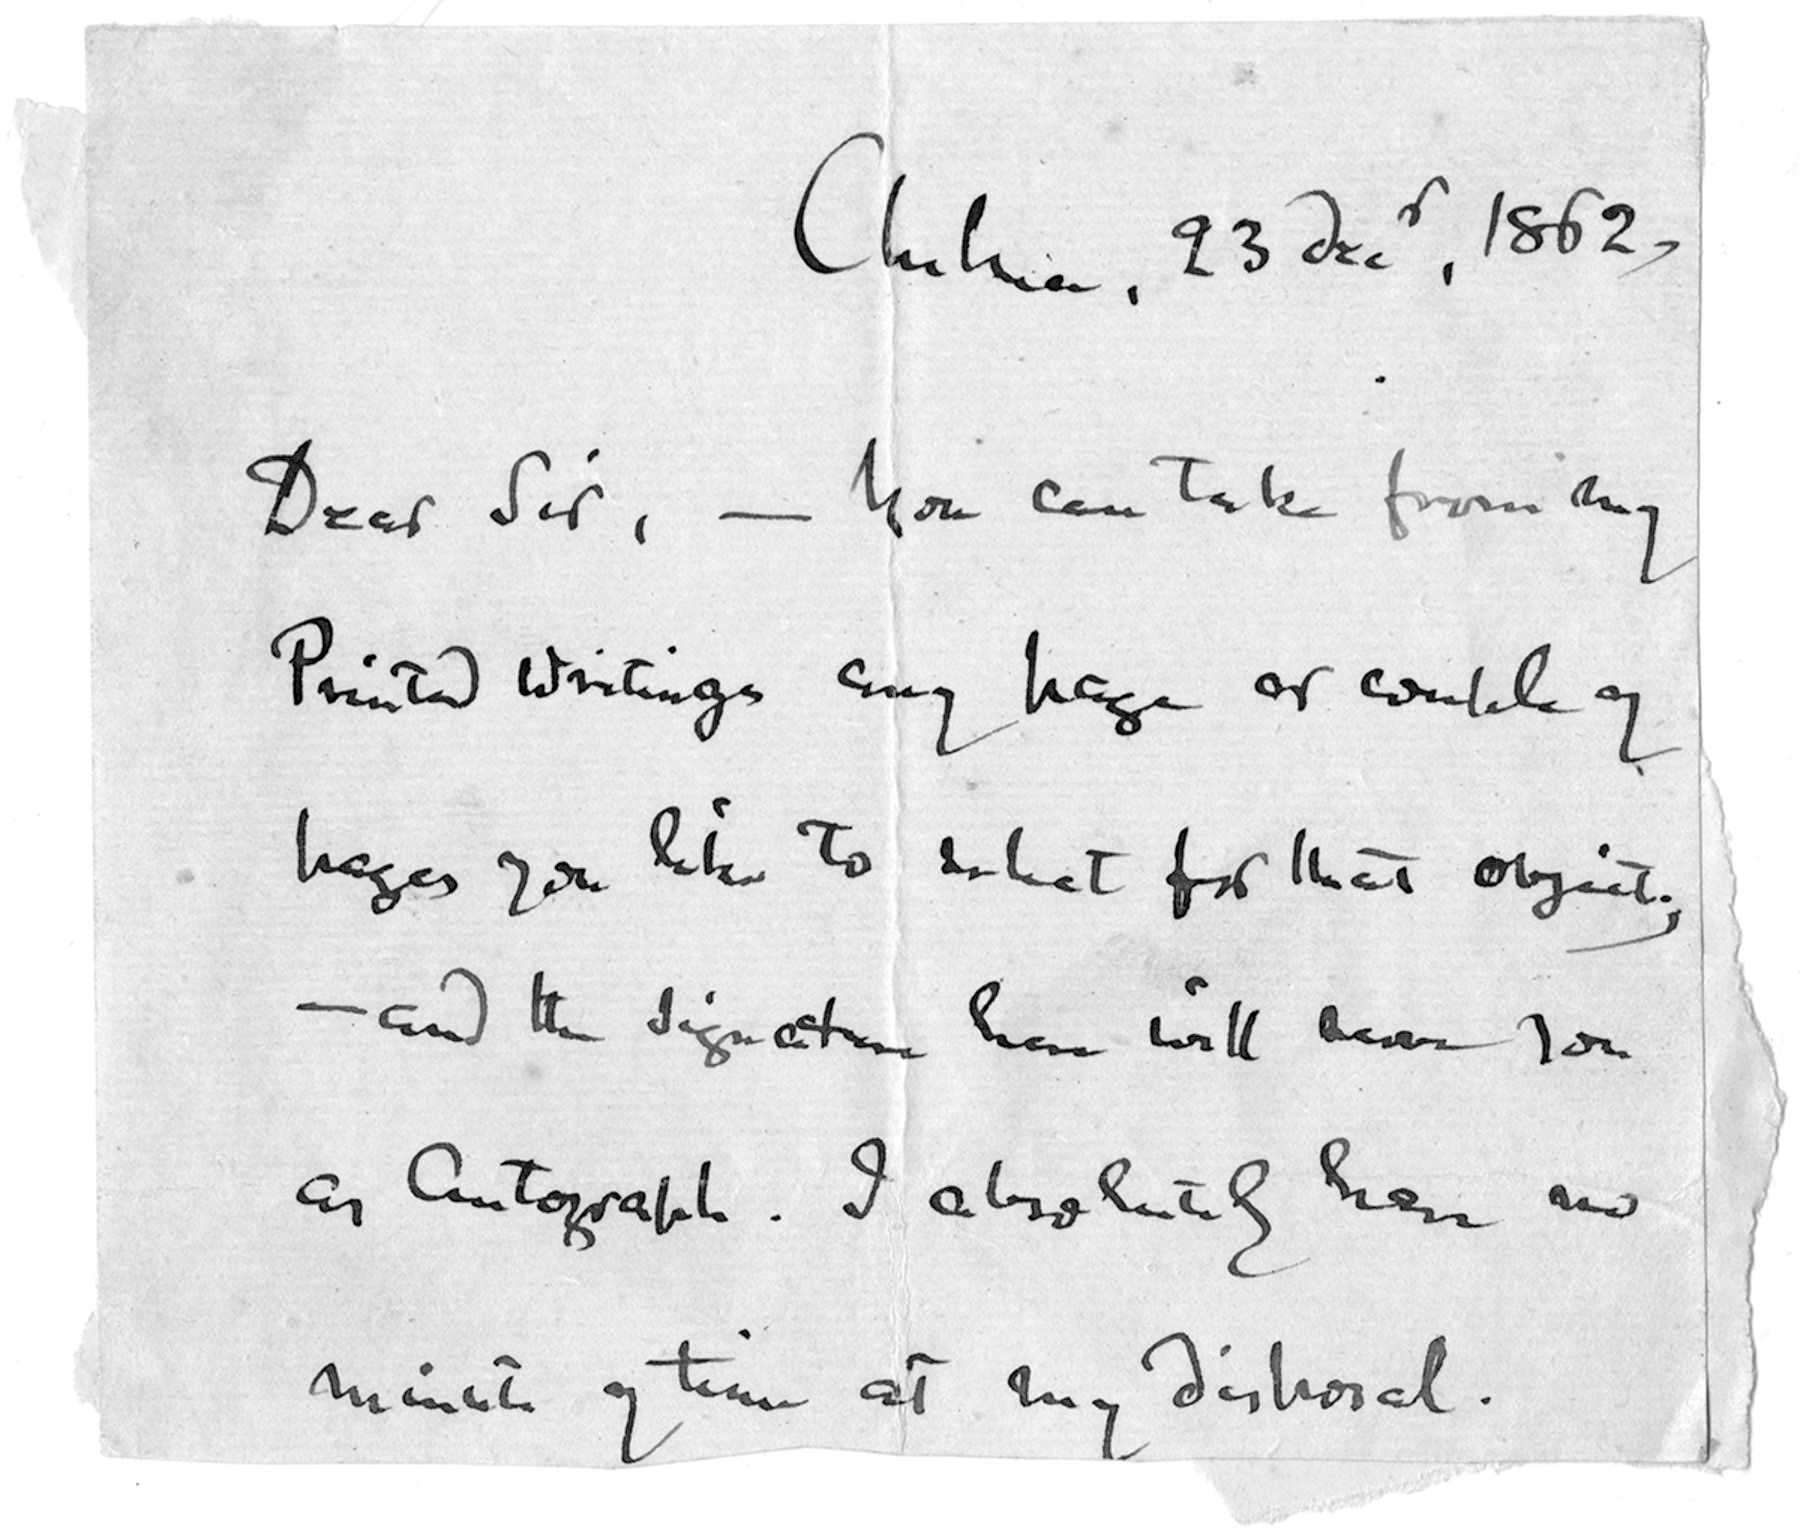 Chelsea, 23 Decr, 1862,
Dear Sir, — You can take from my
Printed Writings any page or couple of
pages you like to select for that object;
— and the signature here will serve you
as Autograph. I absolutely have no
minute of time at my disposal.